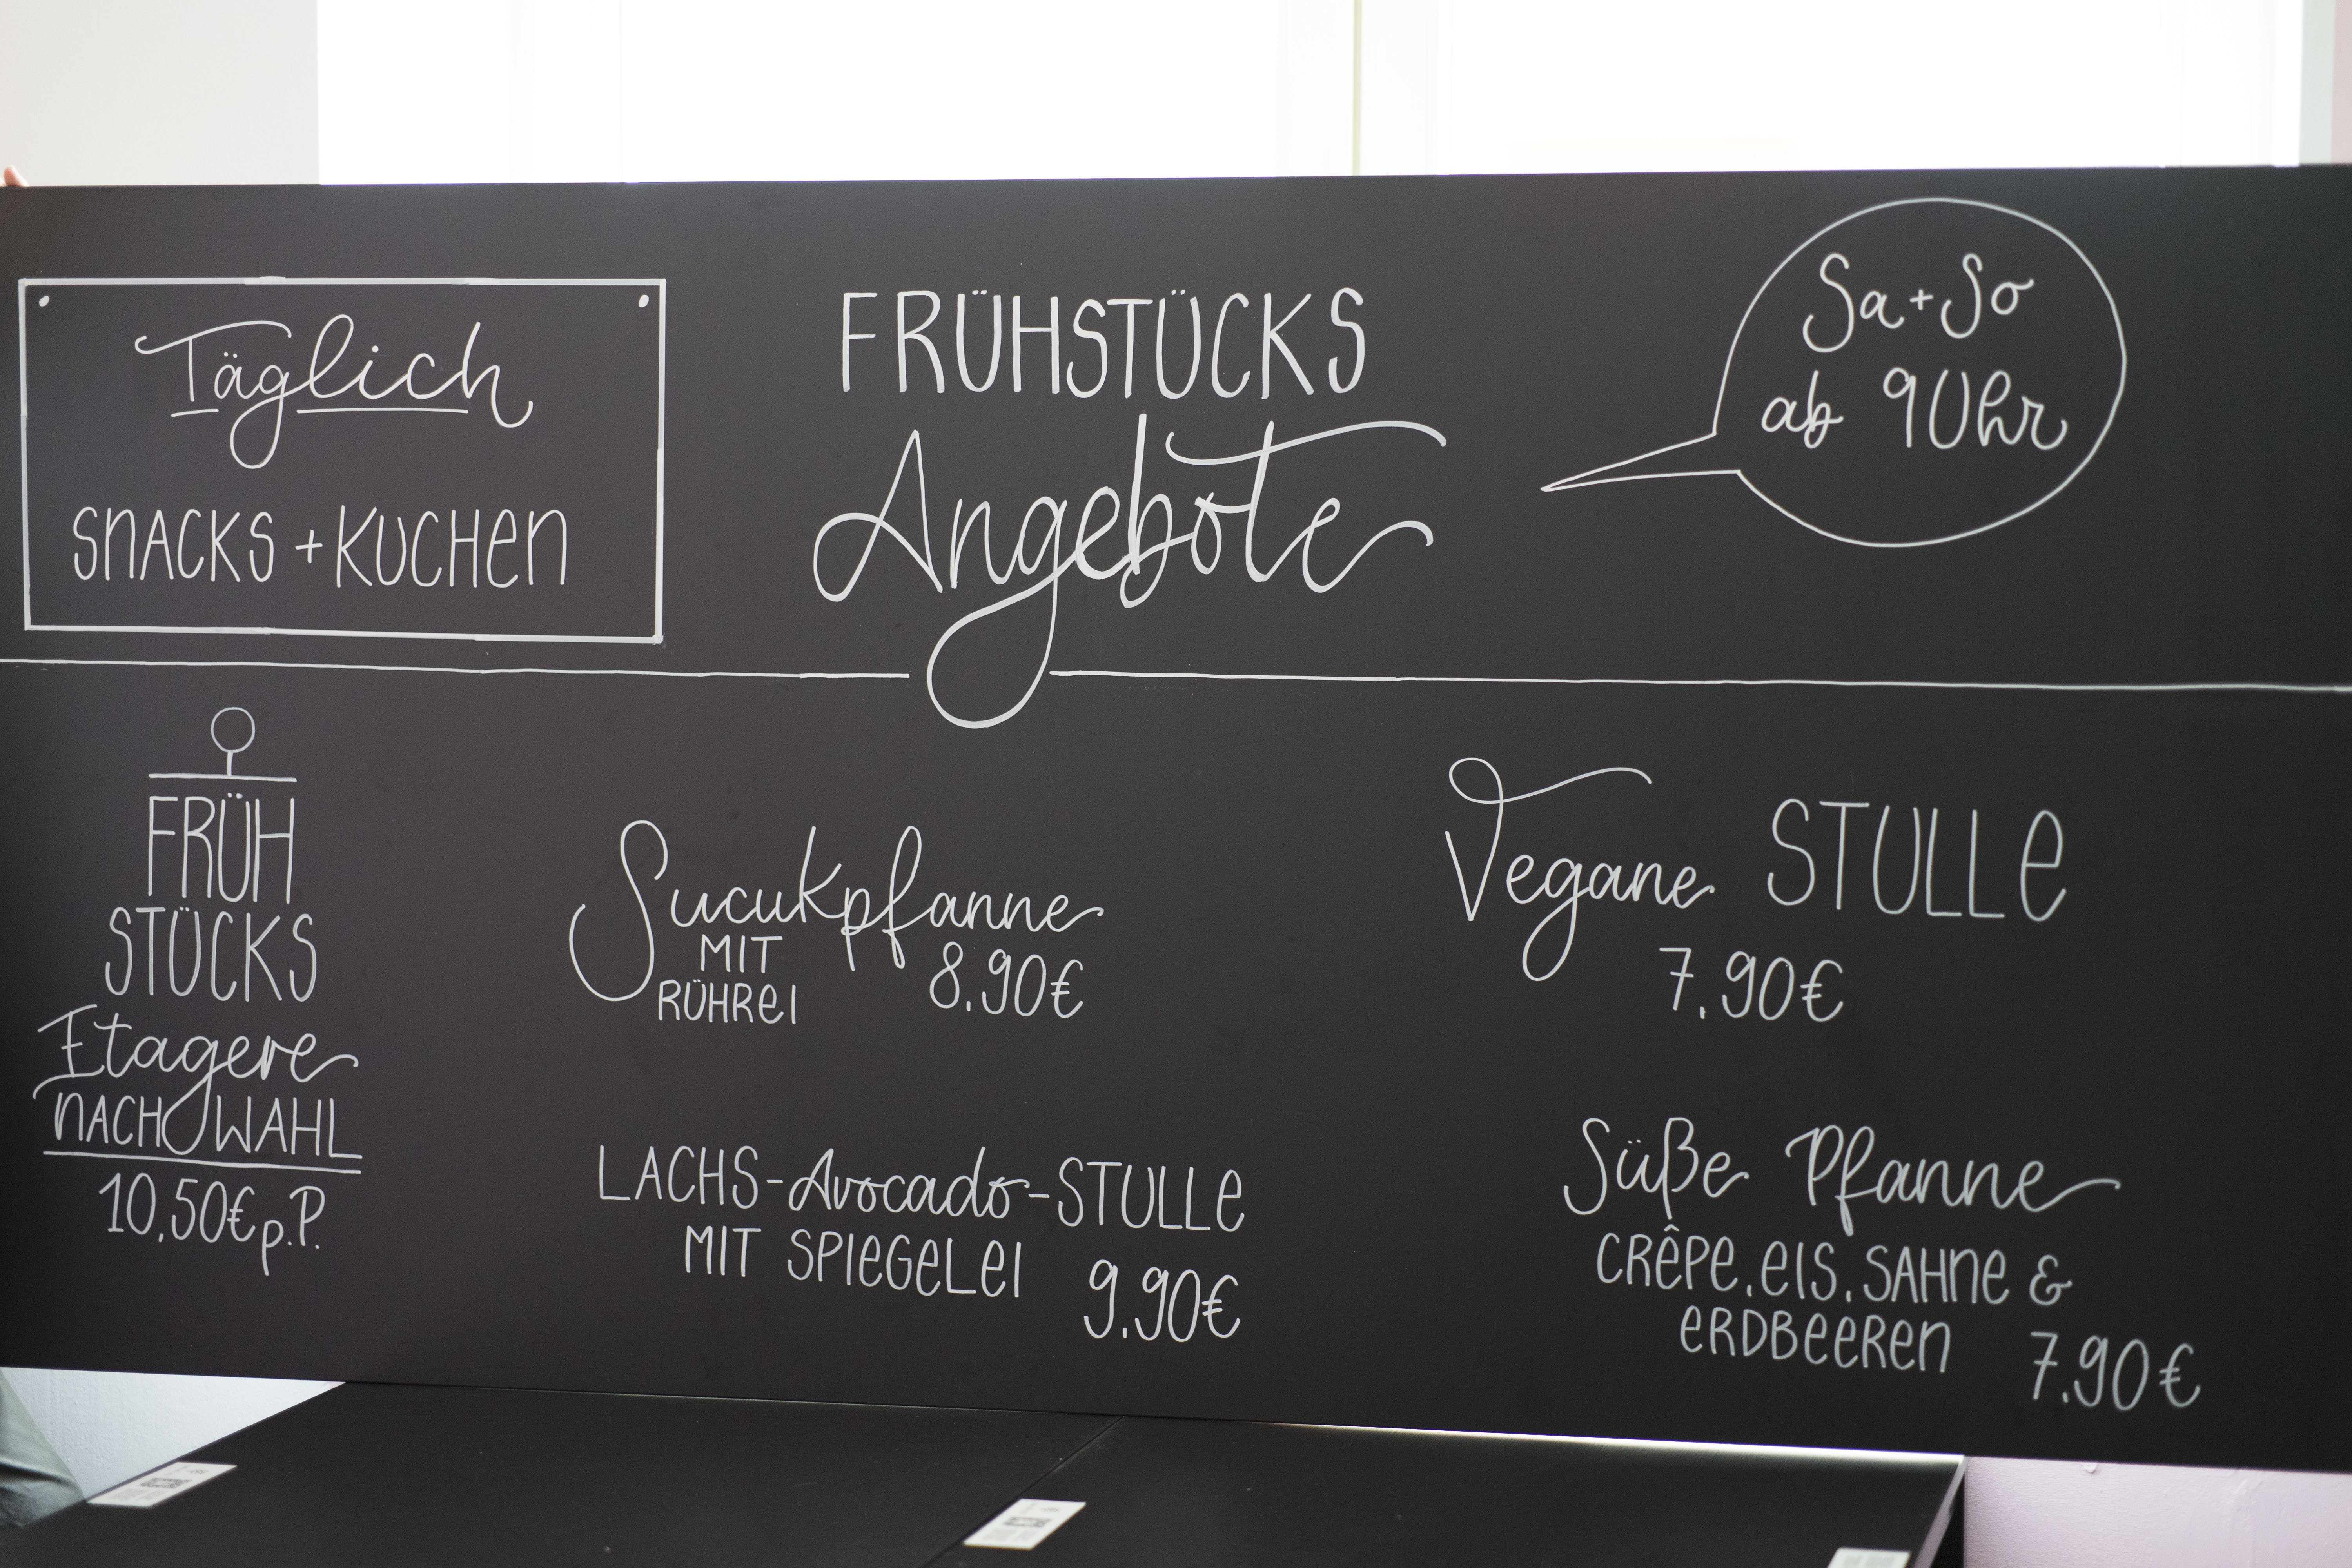 Täglich
SNACKS + KUCHEN
FRÜHSTÜCKS
Angebote
Sa + So
ab 9 Uhr
FRÜH
STÜCKS
Etagere
NACH WAHL
10,50€ p.P.
Sucukpfanne
MIT
RÜHREI
8.90€
LACHS-Avocado-STULLE
MIT SPIEGELEI
9.90€
Vegane STULLE
7.90€
Süße Pfanne
CRÊPE, EIS, SAHNE &
ERDBEEREN
7.90€